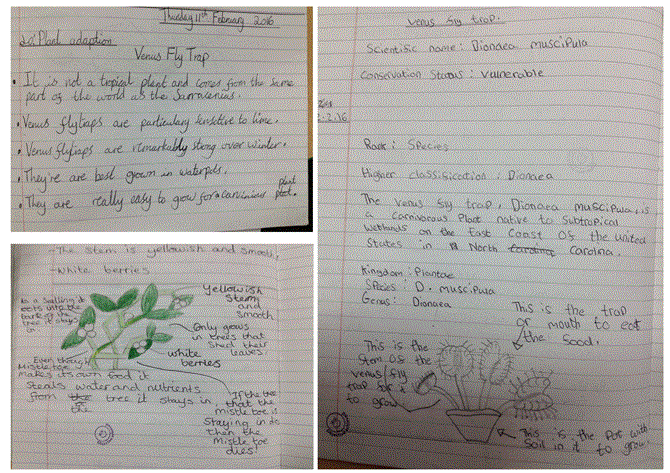 Thursday 11th February 2016
Lo: Plant adaption
Venus Fly Trap
• It is not a tropical plant and comes from the same
part of the world as the Sarracenias.
• Venus flytraps are particularly sensitive to lime.
• Venus flytraps are remarkably strong over winter.
• They're are best grown in waterpots.
plant
• They are really easy to grow for a carnivious plot.
- The stem is yellowish and smooth.
- White berries
Yellowish
stem
and
smooth
Only grows
in trees that
shed their
leaves.
white
berries
is a
it
into the
of the
tree it stays
in
Even though
Mistletoe
makes its own food it
Steals water and nutrients
from the tree it stays in,
the
If the tree
that the
mistletoe is
staying in
then the
Mistletoe
dies!
Venus fly trap.
Scientific name: Dionaea muscipula
Conservation Status: Vulnerable
2.16
Rank: Species
Higher classification: Dionaea
The venus fly trap, Dionaea muscipula, is
a carnivorous Plant native to Subtropical
wetlands on the East Coast of the united
States in North Carolina.
Kingdom: Plantae
Species: D. muscipula
Genus: Dionaea
This is the trap
or mouth to eat
the food.
This is the
stem of the
venus/fly
trap for it
to grow
This is the Pot with
soil in it to grow.